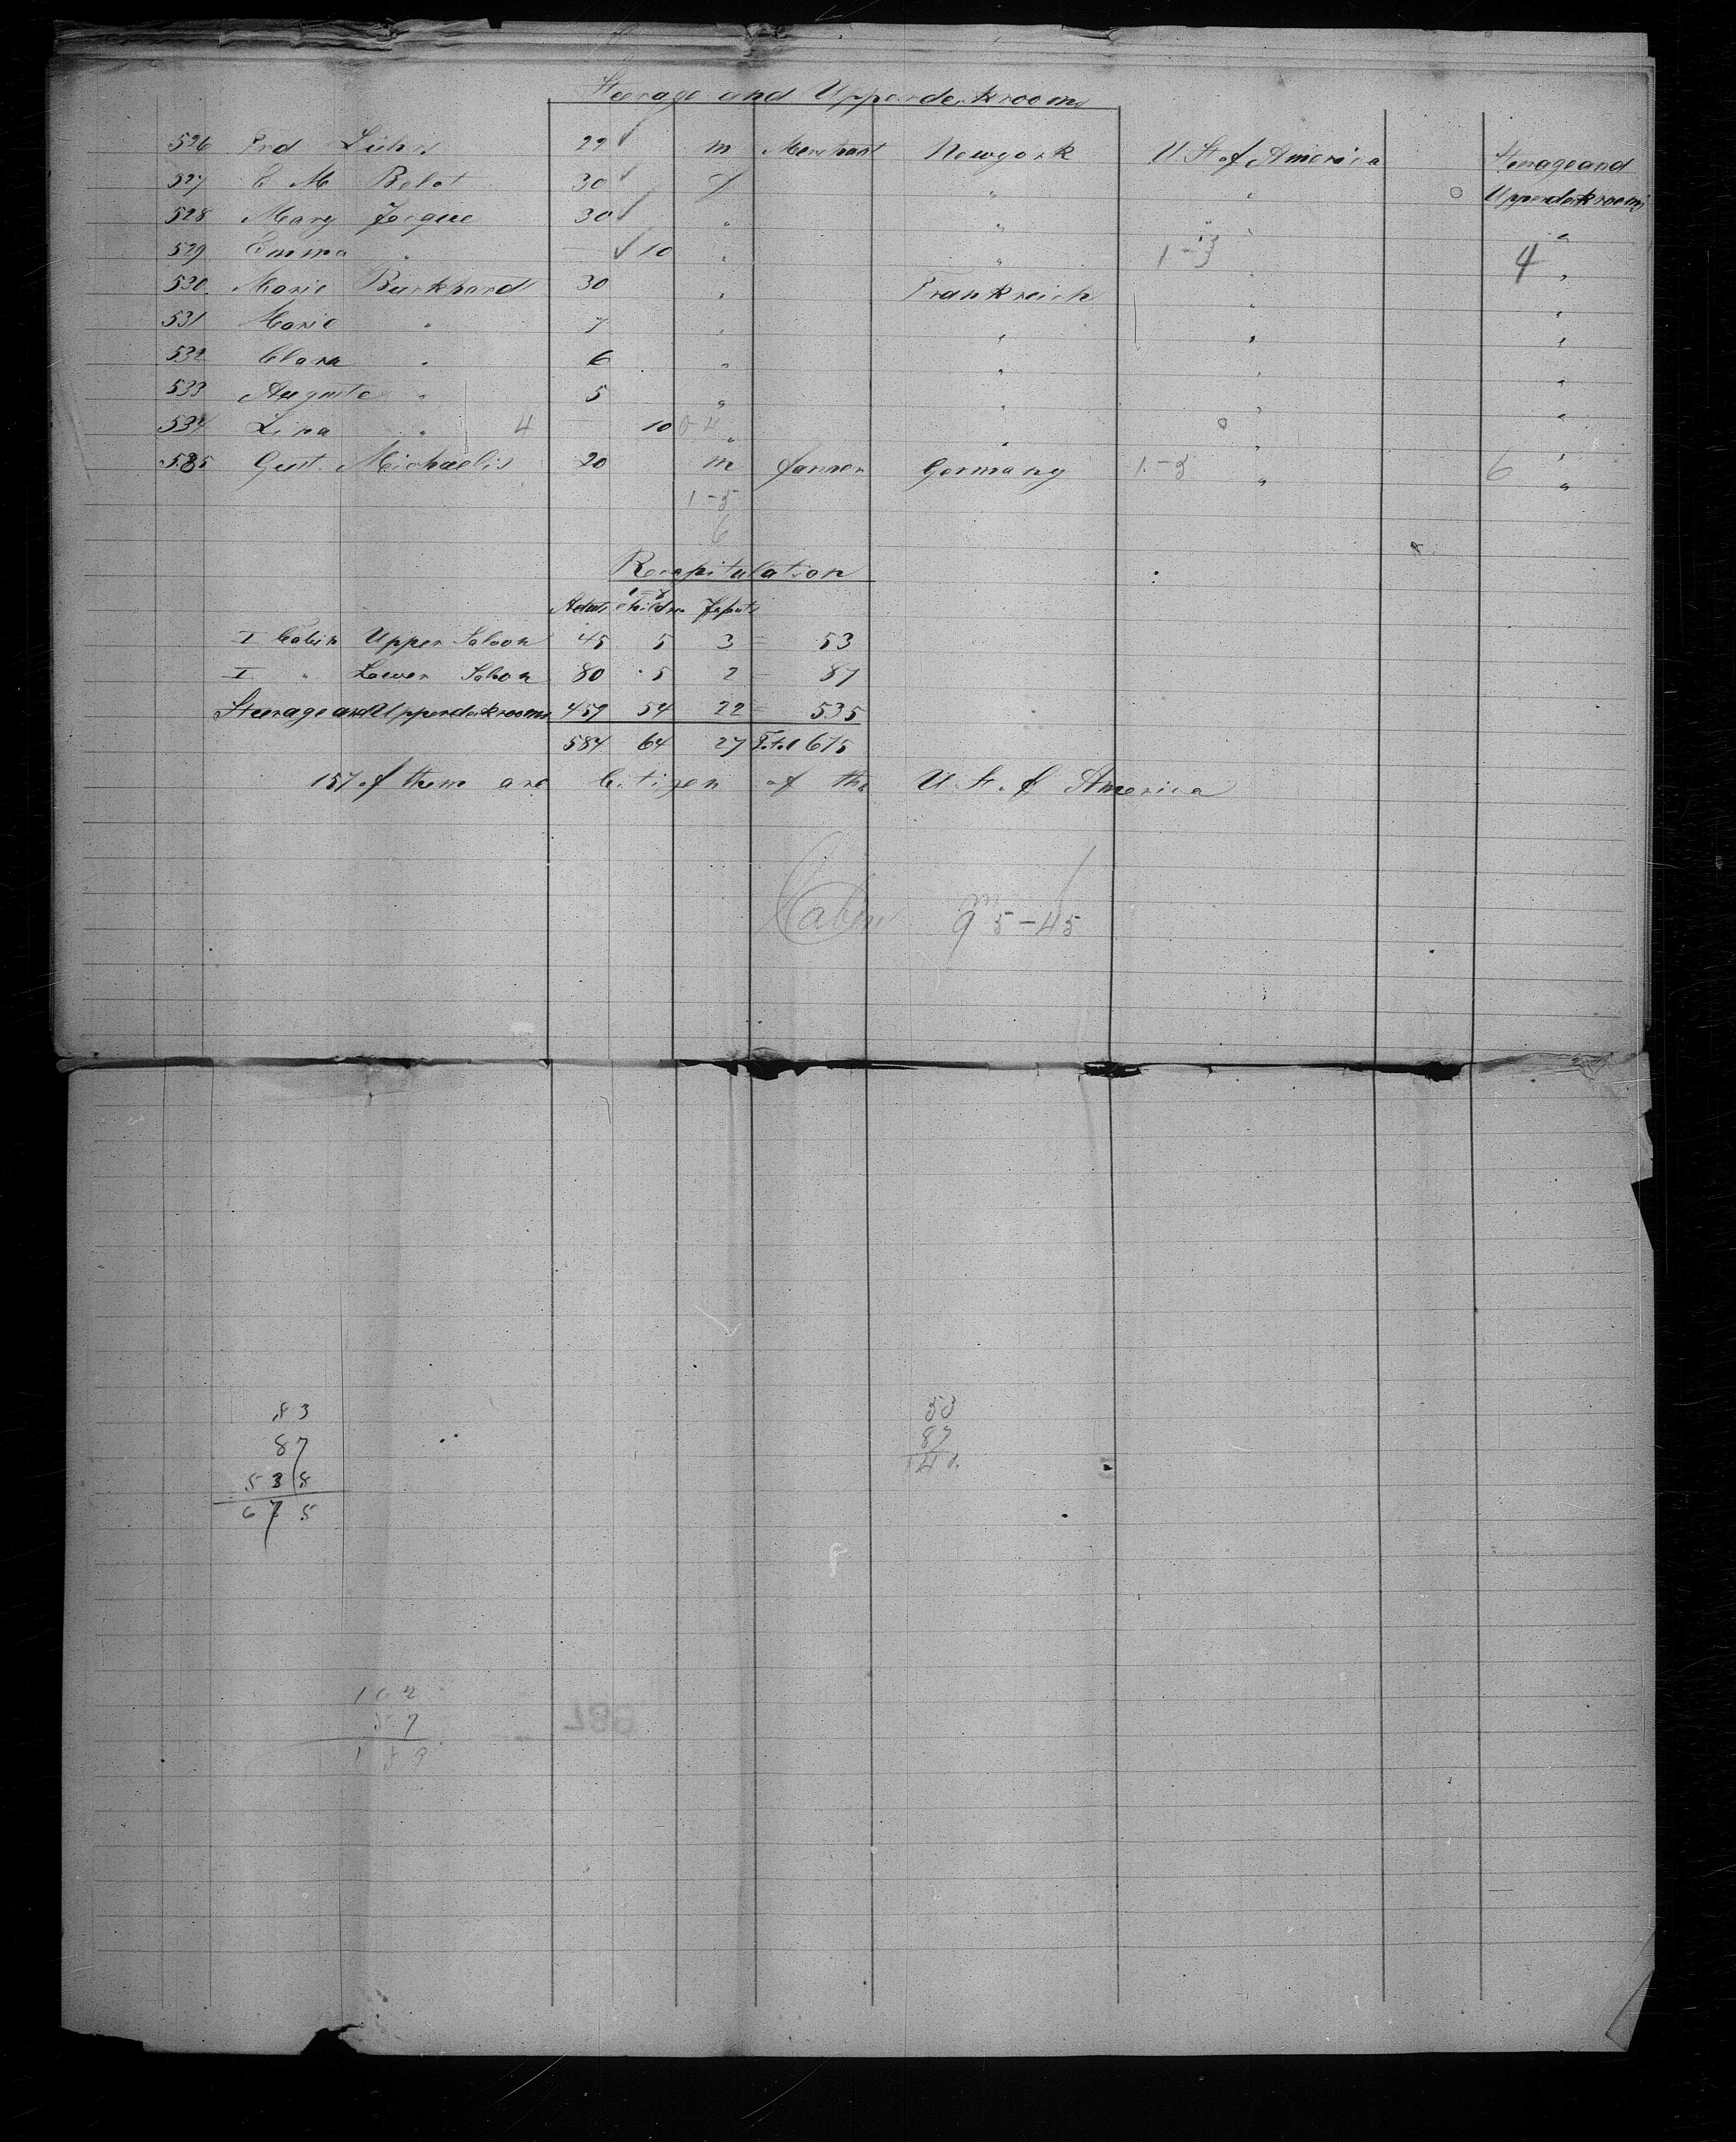 Steerage and Upperdeckrooms
526 Frd Lühr 29 ✓ m Merchant Newyork U. St. of America Steerage and
527 C M Belot 30 ✓ f " " Upperdeckrooms
528 Mary Jacque 30 ✓ " " " "
529 Emma " ✓ 10 " " 1-3 " 4 "
530 Marie Burkhardt 30 " Frankreich " "
531 Marie " 7 " " " "
532 Clara " 6 " " " "
533 Auguste " 5 " " " "
534 Lina " 4 10 0 4 " " " "
535 Gust. Michaelis 20 m farmer Germany 1-3 " 6 "
1-5
6
Recapitulation
1-8
Adults Children Infants
I Cabin Upper Saloon 45 5 3 = 53
I " Lower Saloon 80 5 2 = 87
Steerage and Upperdeckrooms 459 54 22 = 535
584 64 27 Total 675
157 of them are Citizen of the U. St. of America
Cabin m 95-45
83
87
535
675
53
87
140
102
57
159
987